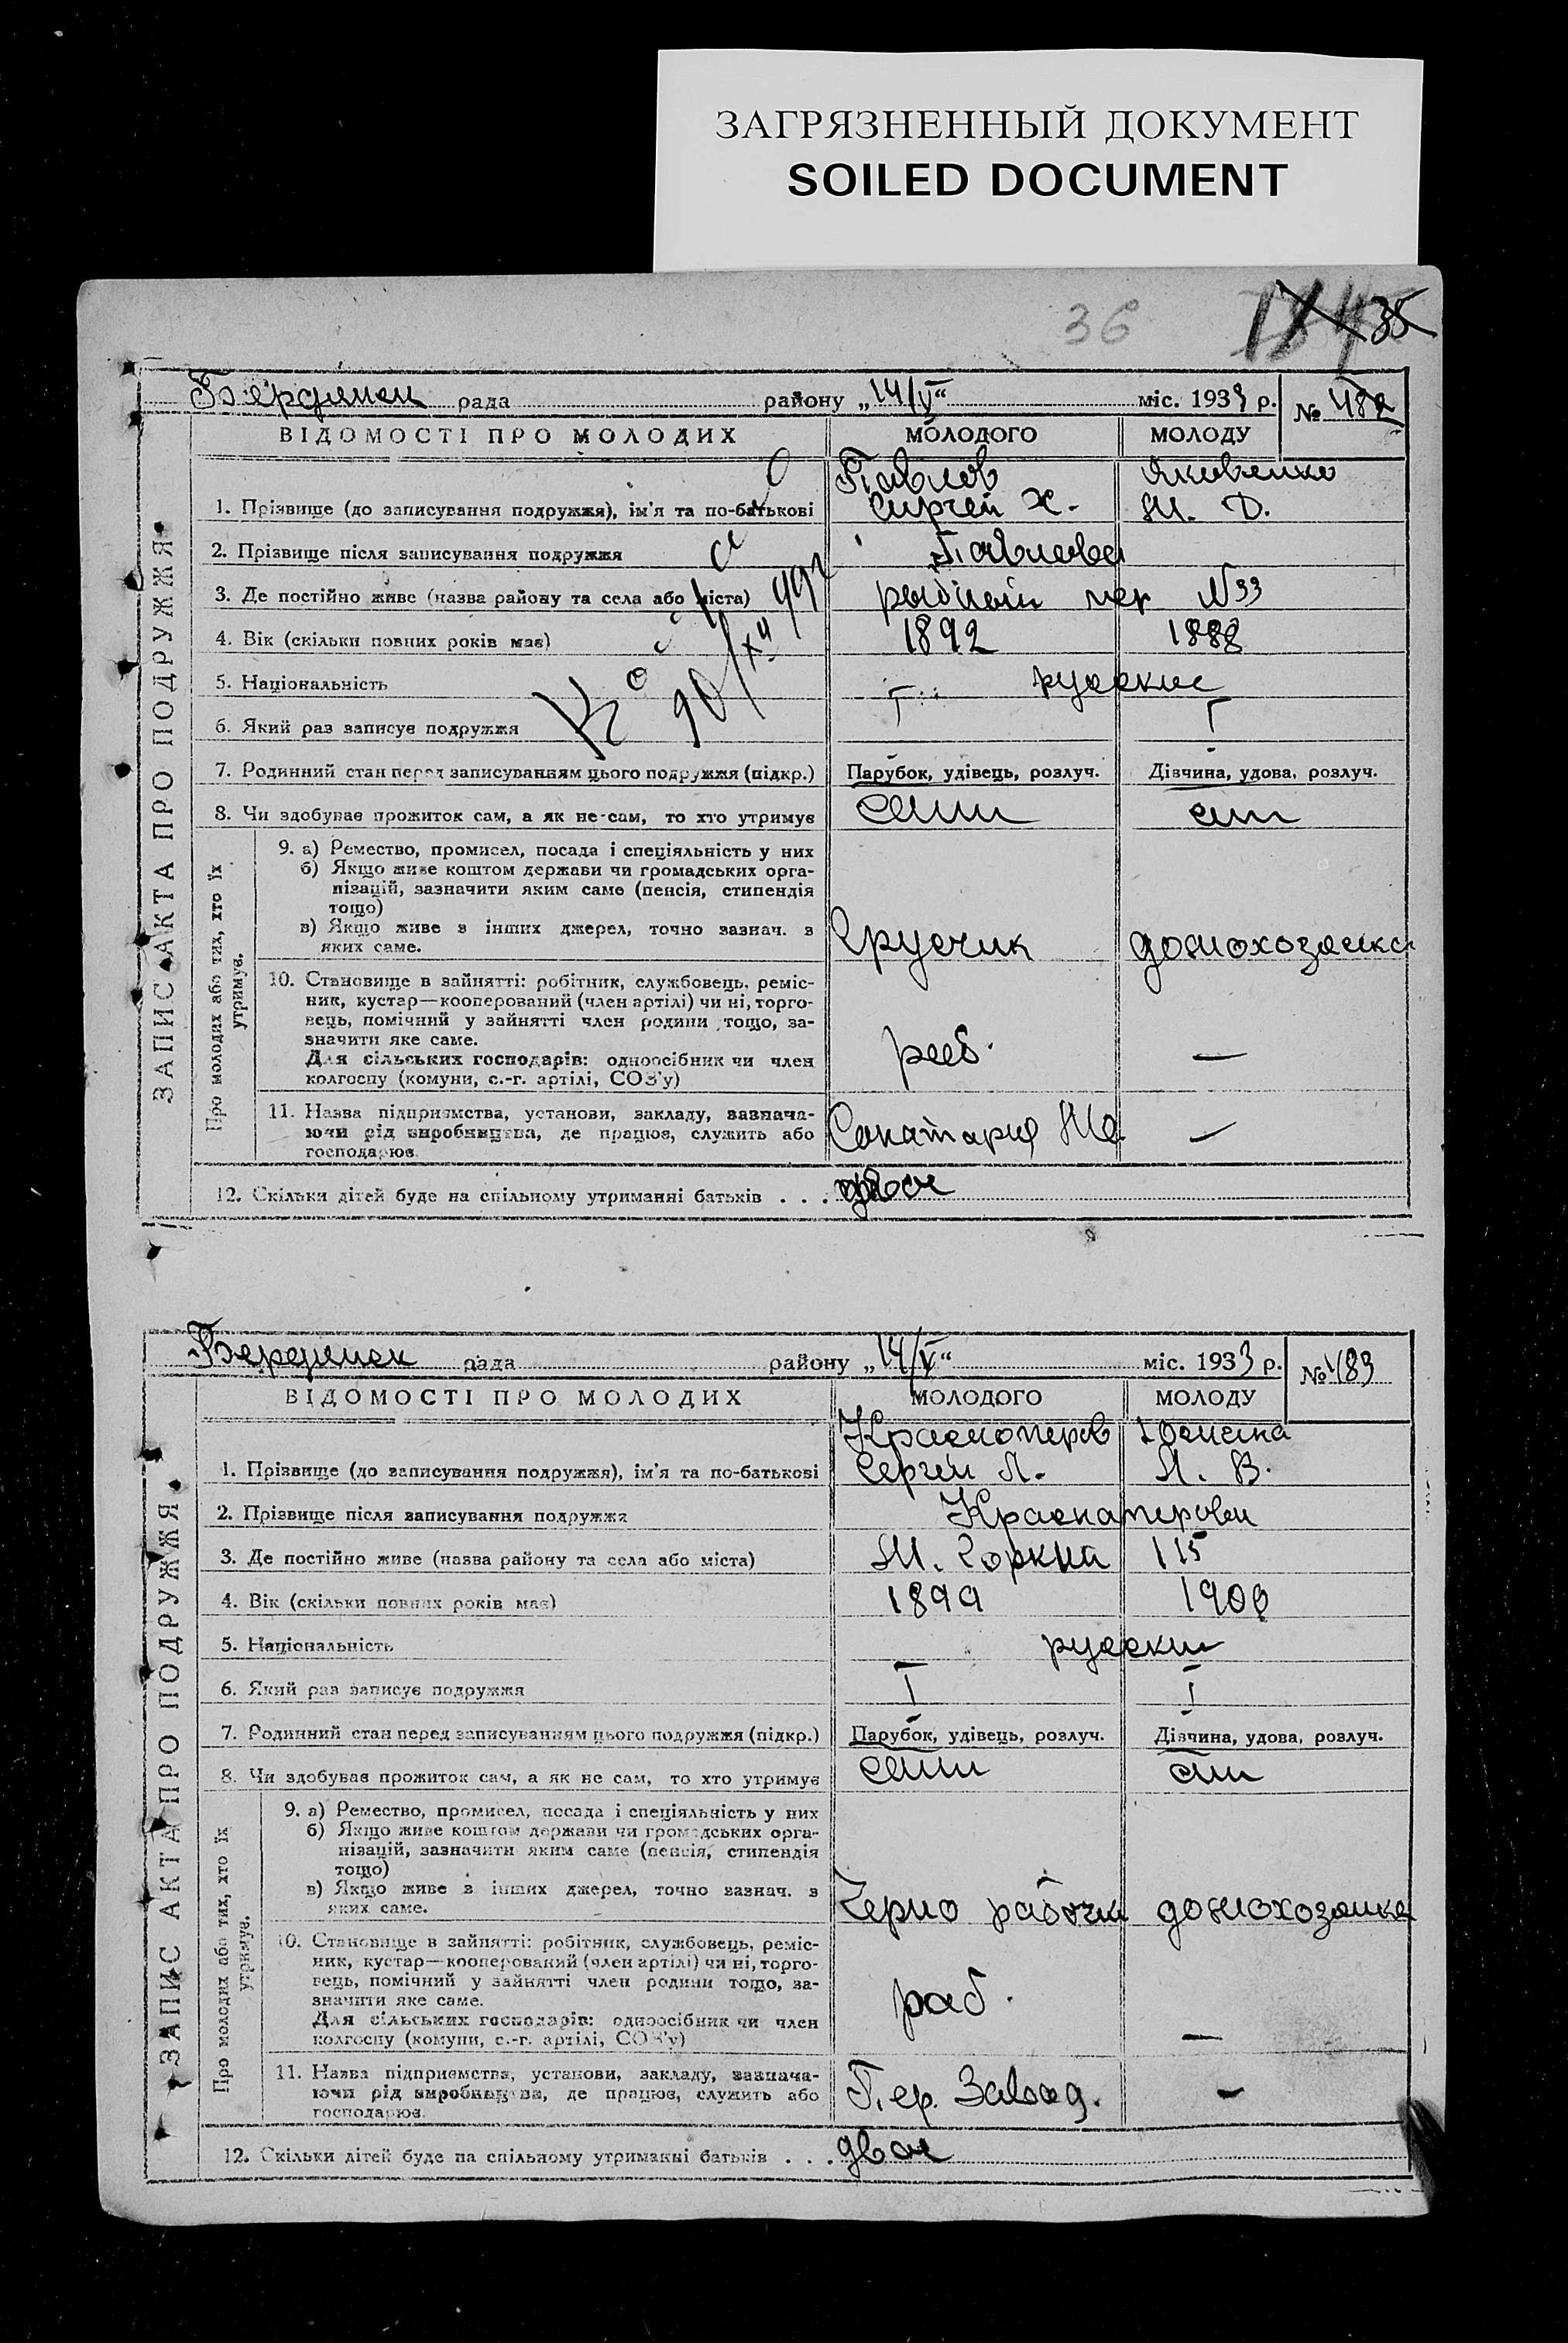 ЗАГРЯЗНЕННЫЙ ДОКУМЕНТ
SOILED DOCUMENT
36
35
рада району „14/V“ міс. 1933 р. № 482
ВІДОМОСТІ ПРО МОЛОДИХ МОЛОДОГО МОЛОДУ
Павлов Яковенко
1. Прізвище (до записування подружжя), ім'я та по-батькові Сергей Х. М. Д.
2. Прізвище після записування подружжя Павлова
3. Де постійно живе (назва району та села або міста) пер N33
4. Вік (скільки повних років має) 1892 1888
5. Національність русские
6. Який раз записує подружжя I I
7. Родинний стан перед записуванням цього подружжя (підкр.) Парубок, удівець, розлуч. Дівчина, удова, розлуч.
8. Чи здобуває прожиток сам, а як не-сам, то хто утримує
ЗАПИС АКТА ПРО ПОДРУЖЖЯ
Про молодих або тих, хто їх утримує.
9. а) Ремество, промисел, посада і спеціяльність у них
б) Якщо живе коштом держави чи громадських орга-
нізацій, зазначити яким саме (пенсія, стипендія
тощо)
в) Якщо живе з інших джерел, точно зазнач. з
яких саме. Грузчик домохозяйка
10. Становище в зайнятті: робітник, службовець, реміс-
ник, кустар—кооперований (член артілі) чи ні, торго-
вець, помічний у зайнятті член родини тощо, за-
значити яке саме.
Для сільських господарів: одноосібник чи член раб. —
колгоспу (комуни, с.-г. артілі, СОЗ'у)
11. Назва підприємства, установи, закладу, зазнача-
ючи рід виробництва, де працює, служить або —
господарює.
12. Скільки дітей буде на спільному утриманні батьків . . . двое
рада району „14/V“ міс. 1933 р. № 483
ВІДОМОСТІ ПРО МОЛОДИХ МОЛОДОГО МОЛОДУ
Красноперов
1. Прізвище (до записування подружжя), ім'я та по-батькові Сергей Л. В.
2. Прізвище після записування подружжя
3. Де постійно живе (назва району та села або міста) М. Горкий 115
4. Вік (скільки повних років має) 1899 1900
5. Національність русские
6. Який раз записує подружжя I I
7. Родинний стан перед записуванням цього подружжя (підкр.) Парубок, удівець, розлуч. Дівчина, удова, розлуч.
8. Чи здобуває прожиток сам, а як не сам, то хто утримує
ЗАПИС АКТА ПРО ПОДРУЖЖЯ
Про молодих або тих, хто їх утримує.
9. а) Ремество, промисел, посада і спеціяльність у них
б) Якщо живе коштом держави чи громадських орга-
нізацій, зазначити яким саме (пенсія, стипендія
тощо)
в) Якщо живе з інших джерел, точно зазнач. з
яких саме. Черно рабочий домохозяйка
10. Становище в зайнятті: робітник, службовець, реміс-
ник, кустар—кооперований (член артілі) чи ні, торго-
вець, помічний у зайнятті член родини тощо, за-
значити яке саме. раб.
Для сільських господарів: одноосібник чи член
колгоспу (комуни, с.-г. артілі, СОЗ'у) —
11. Назва підприємства, установи, закладу, зазнача-
ючи рід виробництва, де працює, служить або Пер. Завод. —
господарює.
12. Скільки дітей буде на спільному утриманні батьків . . . двое